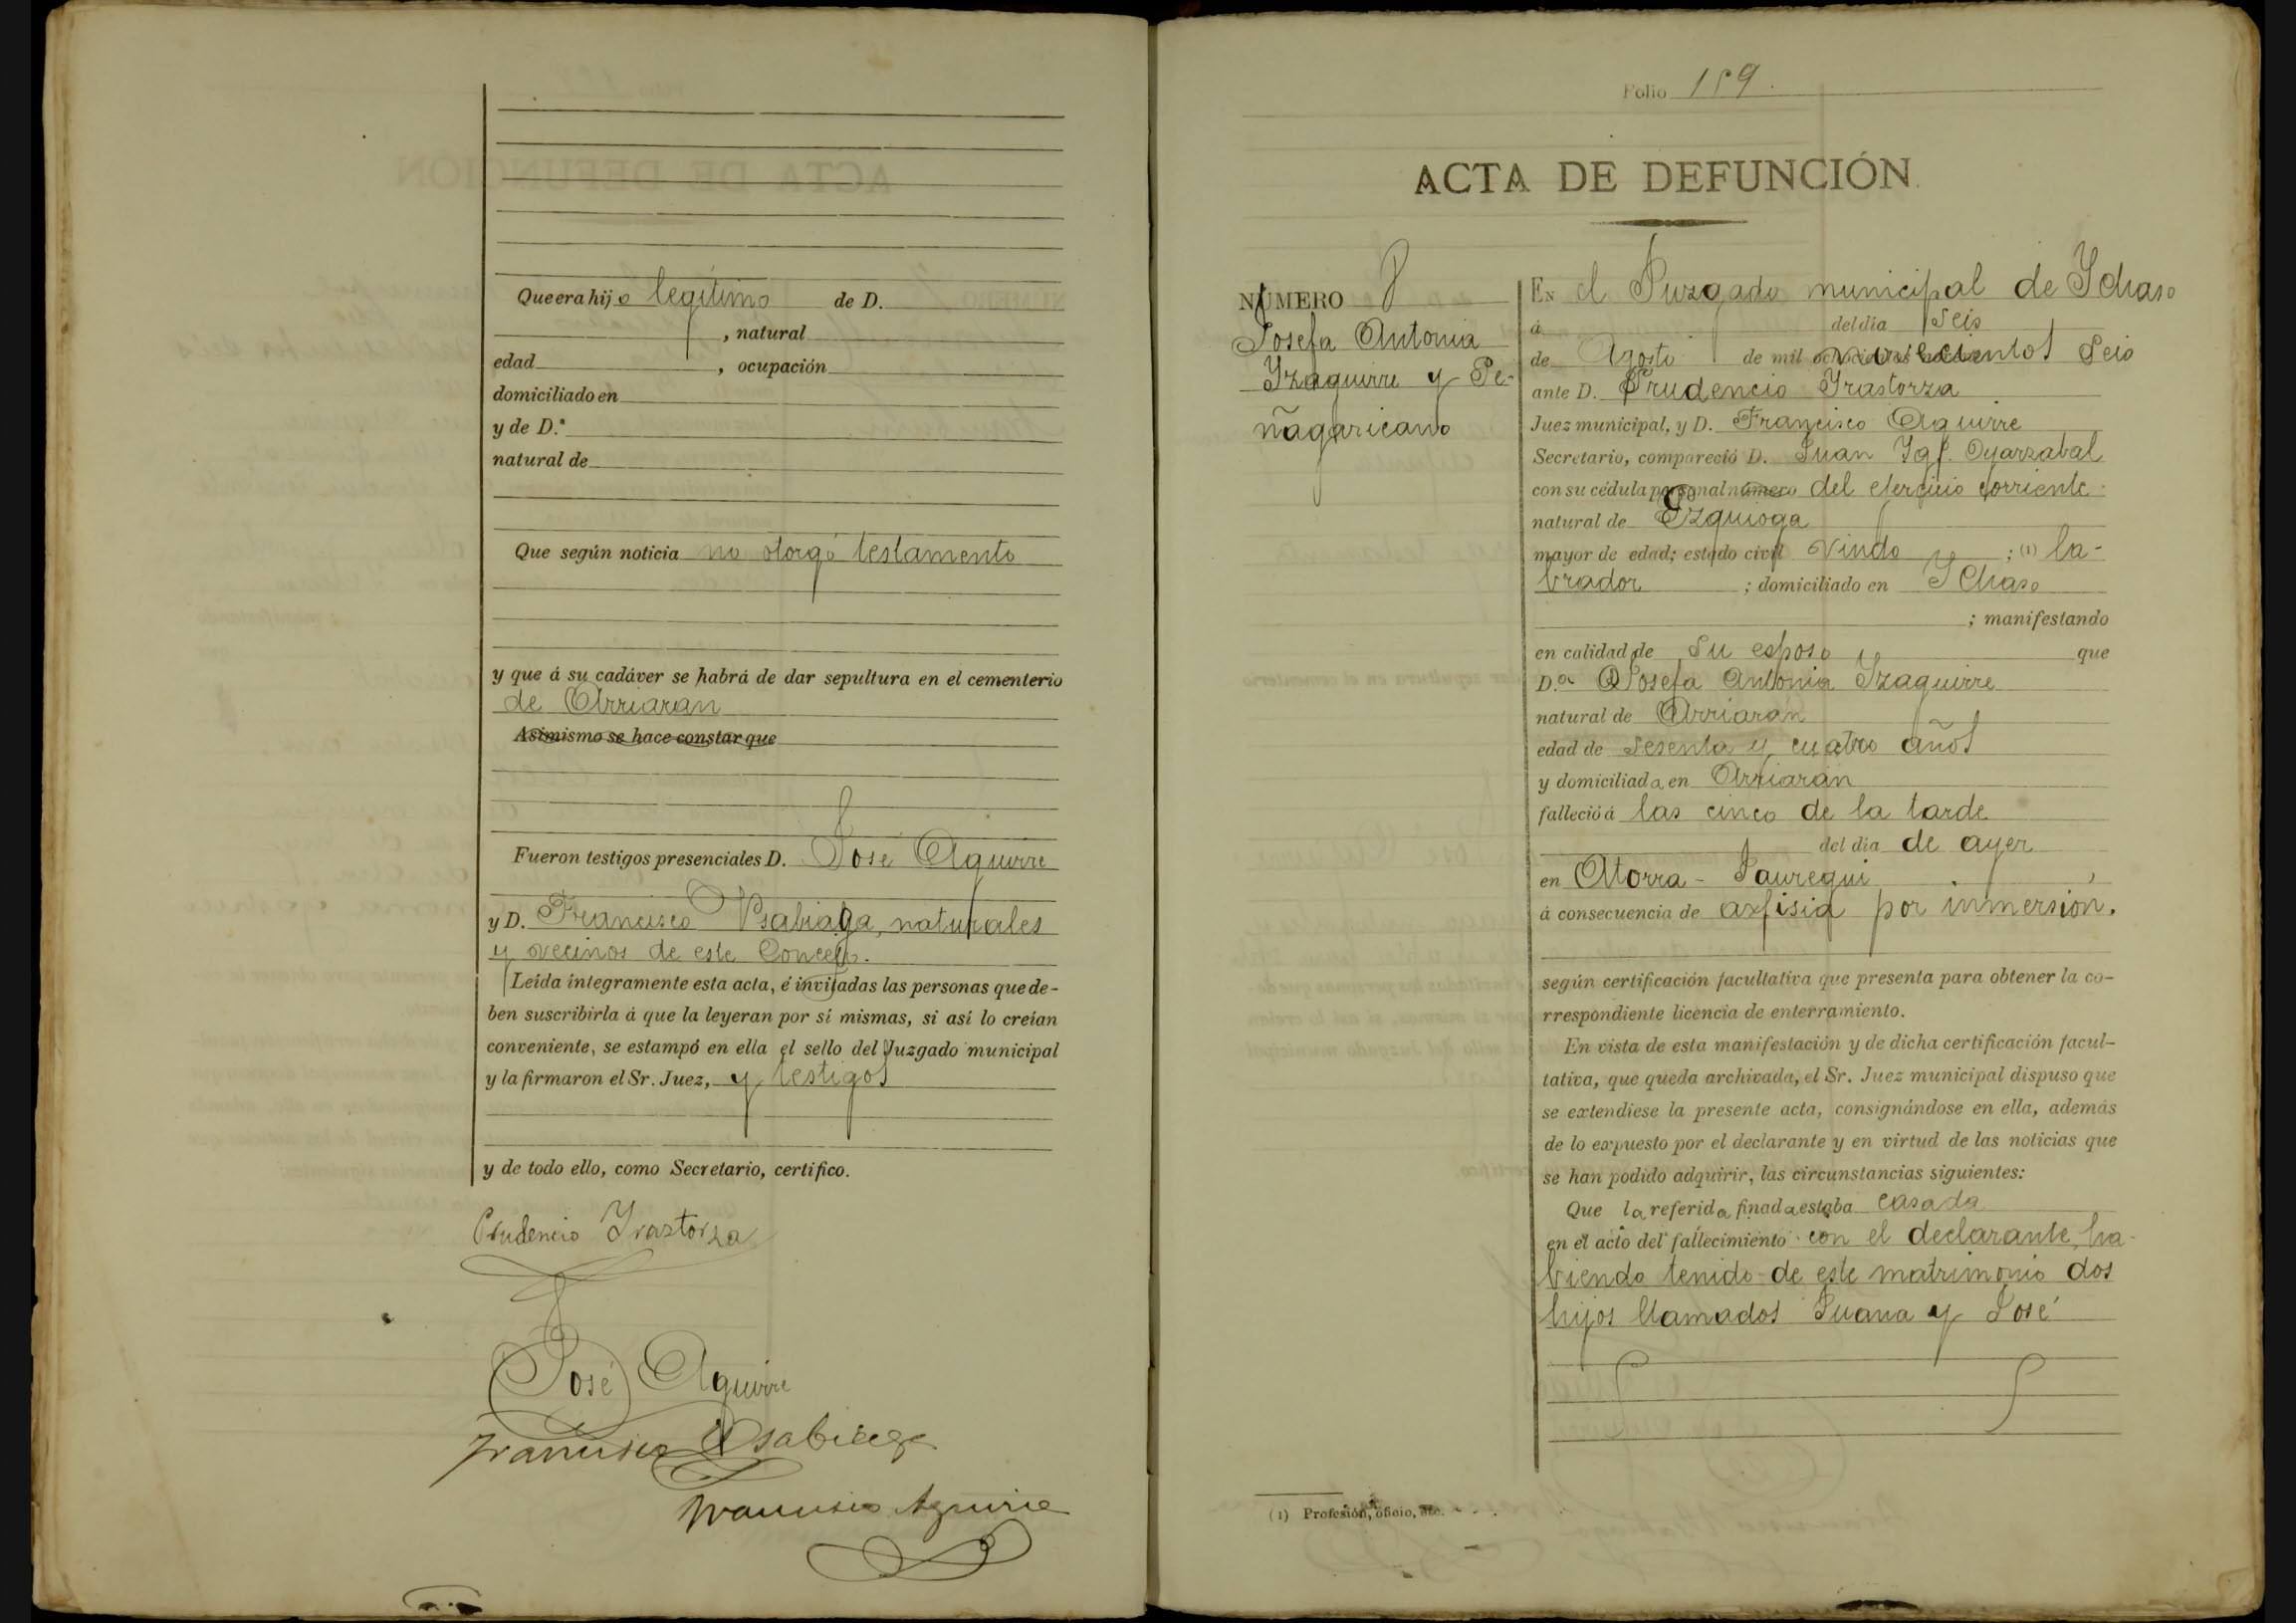 Que era hijo legítimo de D.
, natural
edad , ocupación
domiciliado en
y de D.ª
natural de
Que según noticia no otorgó testamento
y que á su cadáver se habrá de dar sepultura en el cementerio
de Arriaran
Asimismo se hace constar que
Fueron testigos presenciales D. José Aguirre
y D. Francisco Usabiaga, naturales
y vecinos de este Concejo.
Leída íntegramente esta acta, é invitadas las personas que de-
ben suscribirla á que la leyeran por sí mismas, si así lo creían
conveniente, se estampó en ella el sello del Juzgado municipal
y la firmaron el Sr. Juez, y testigos
y de todo ello, como Secretario, certifico.
Prudencio Yrastorza
José Aguirre
Francisco Usabiaga
Francisco Aguirre
Folio 159.
ACTA DE DEFUNCIÓN.
NÚMERO 8
Josefa Antonia
Yzaguirre y Pe-
ñagaricano
En el Juzgado municipal de Ychaso
á del día seis
de Agosto de mil novecientos seis
ante D. Prudencio Yrastorza
Juez municipal, y D. Francisco Aguirre
Secretario, compareció D. Juan Ygº. Oyarzabal
con su cédula personal número del ejercicio corriente
natural de Ezquioga
mayor de edad; estado civil viudo ; (1) la-
brador ; domiciliado en YChaso
; manifestando
en calidad de su esposo que
D.ª Josefa Antonia Yzaguirre
natural de Arriaran
edad de sesenta y cuatro años
y domiciliada en Arriarán
falleció á las cinco de la tarde
del día de ayer
en Atorra-Jauregui
á consecuencia de axfisia por inmersión.
según certificación facultativa que presenta para obtener la co-
rrespondiente licencia de enterramiento.
En vista de esta manifestación y de dicha certificación facul-
tativa, que queda archivada, el Sr. Juez municipal dispuso que
se extendiese la presente acta, consignándose en ella, además
de lo expuesto por el declarante y en virtud de las noticias que
se han podido adquirir, las circunstancias siguientes:
Que la referida finada estaba casada
en el acto del fallecimiento con el declarante, ha-
biendo tenido de este matrimonio dos
hijos llamados Juana y José
(1) Profesión, oficio, etc.